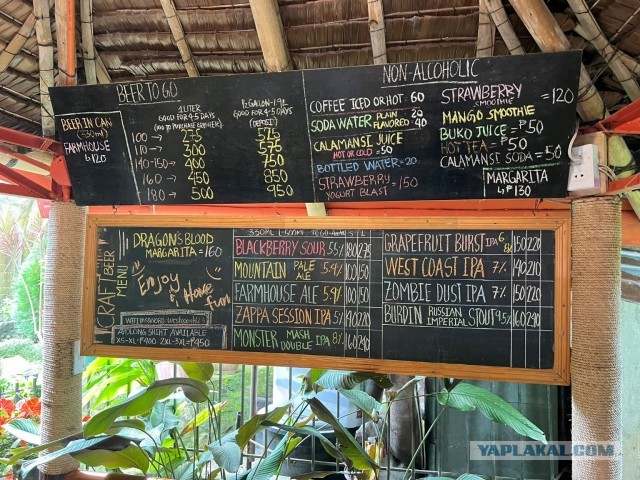 BEER TO GO
BEER IN CAN
(330ml)
FARMHOUSE
₱120
1 LITER
GOOD FOR 4-5 DAYS
½ GALLON-1.9L
GOOD FOR 4-5 DAYS
(DEPOSIT)
100 →
130 →
140-150 → 400 750
160 → 450 850
180 → 500 950
NON-ALCOHOLIC
COFFEE ICED OR HOT 60
SODA WATER PLAIN 20
FLAVORED 40
CALAMANSI JUICE
HOT OR COLD = 50
BOTTLED WATER = 20
STRAWBERRY = 150
YOGURT BLAST
STRAWBERRY
SMOOTHIE
MANGO SMOOTHIE
= 120
BUKO JUICE = ₱50
HOT TEA = ₱50
CALAMANSI SODA = 50
MARGARITA
₱130
CRAFT BEER
MENU
DRAGON'S BLOOD
MARGARITA = 160
Enjoy
& Have
fun
AVAILABLE
XS-XL-₱400 2XL-3XL-₱450
BLACKBERRY SOUR 5.5%
MOUNTAIN PALE ALE 5.9%
FARMHOUSE ALE 5.9%
ZAPPA SESSION IPA 5%
MONSTER MASH
DOUBLE IPA 8%
GRAPEFRUIT BURST IPA
150 220
WEST COAST IPA 7% 140 210
ZOMBIE DUST IPA 7% 150 220
BURDIN RUSSIAN
IMPERIAL STOUT 9.5% 160 240
YAPLAKAL.COM